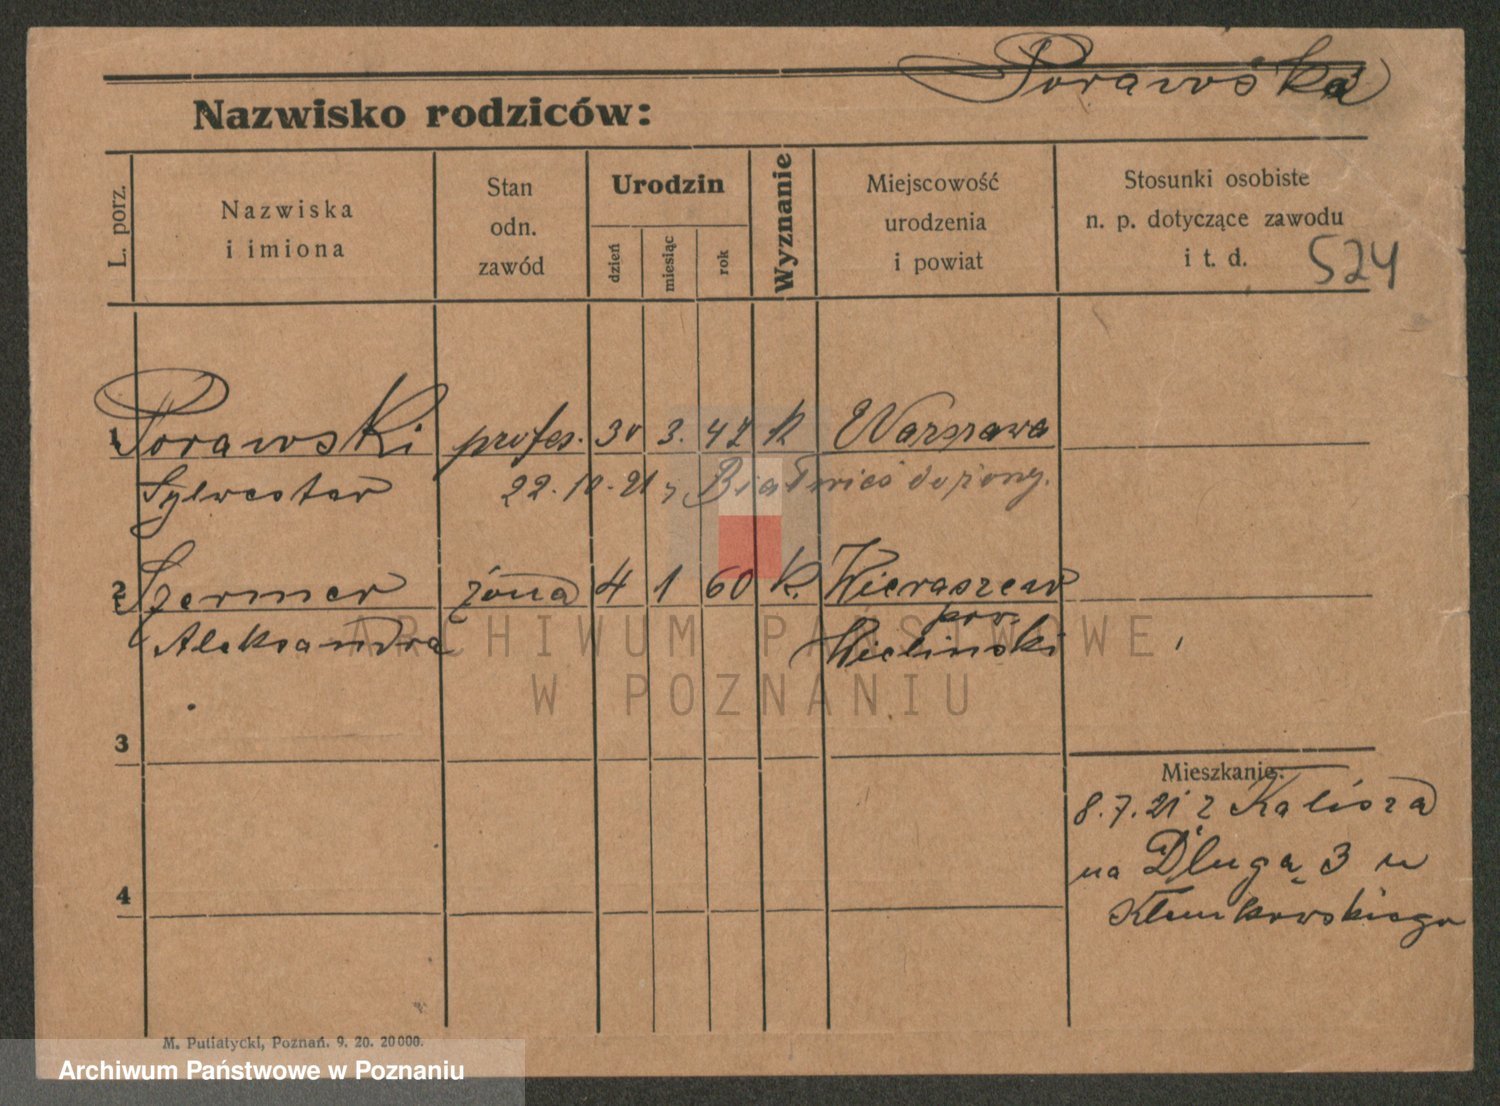 Porawska
Nazwisko rodziców:
L. porz.
Nazwiska
i imiona
Stan
odn.
zawód
Urodzin
dzień
miesiąc
rok
Wyznanie
Miejscowość
urodzenia
i powiat
Stosunki osobiste
n. p. dotyczące zawodu
i t. d.
524
1 Porawski profes. 30 3. 47 k Warszawa
Sylwester 22.10.21 z
2 Szermer żona 4 1 60 k. Wieraszew
pow.
Aleksandra Wieliński
ARCHIWUM PAŃSTWOWE
W POZNANIU
3
Mieszkanie:
8.7.21 z Kalisza
na Długą 3 u
4
M. Putiatycki, Poznań. 9. 20. 20000.
Archiwum Państwowe w Poznaniu